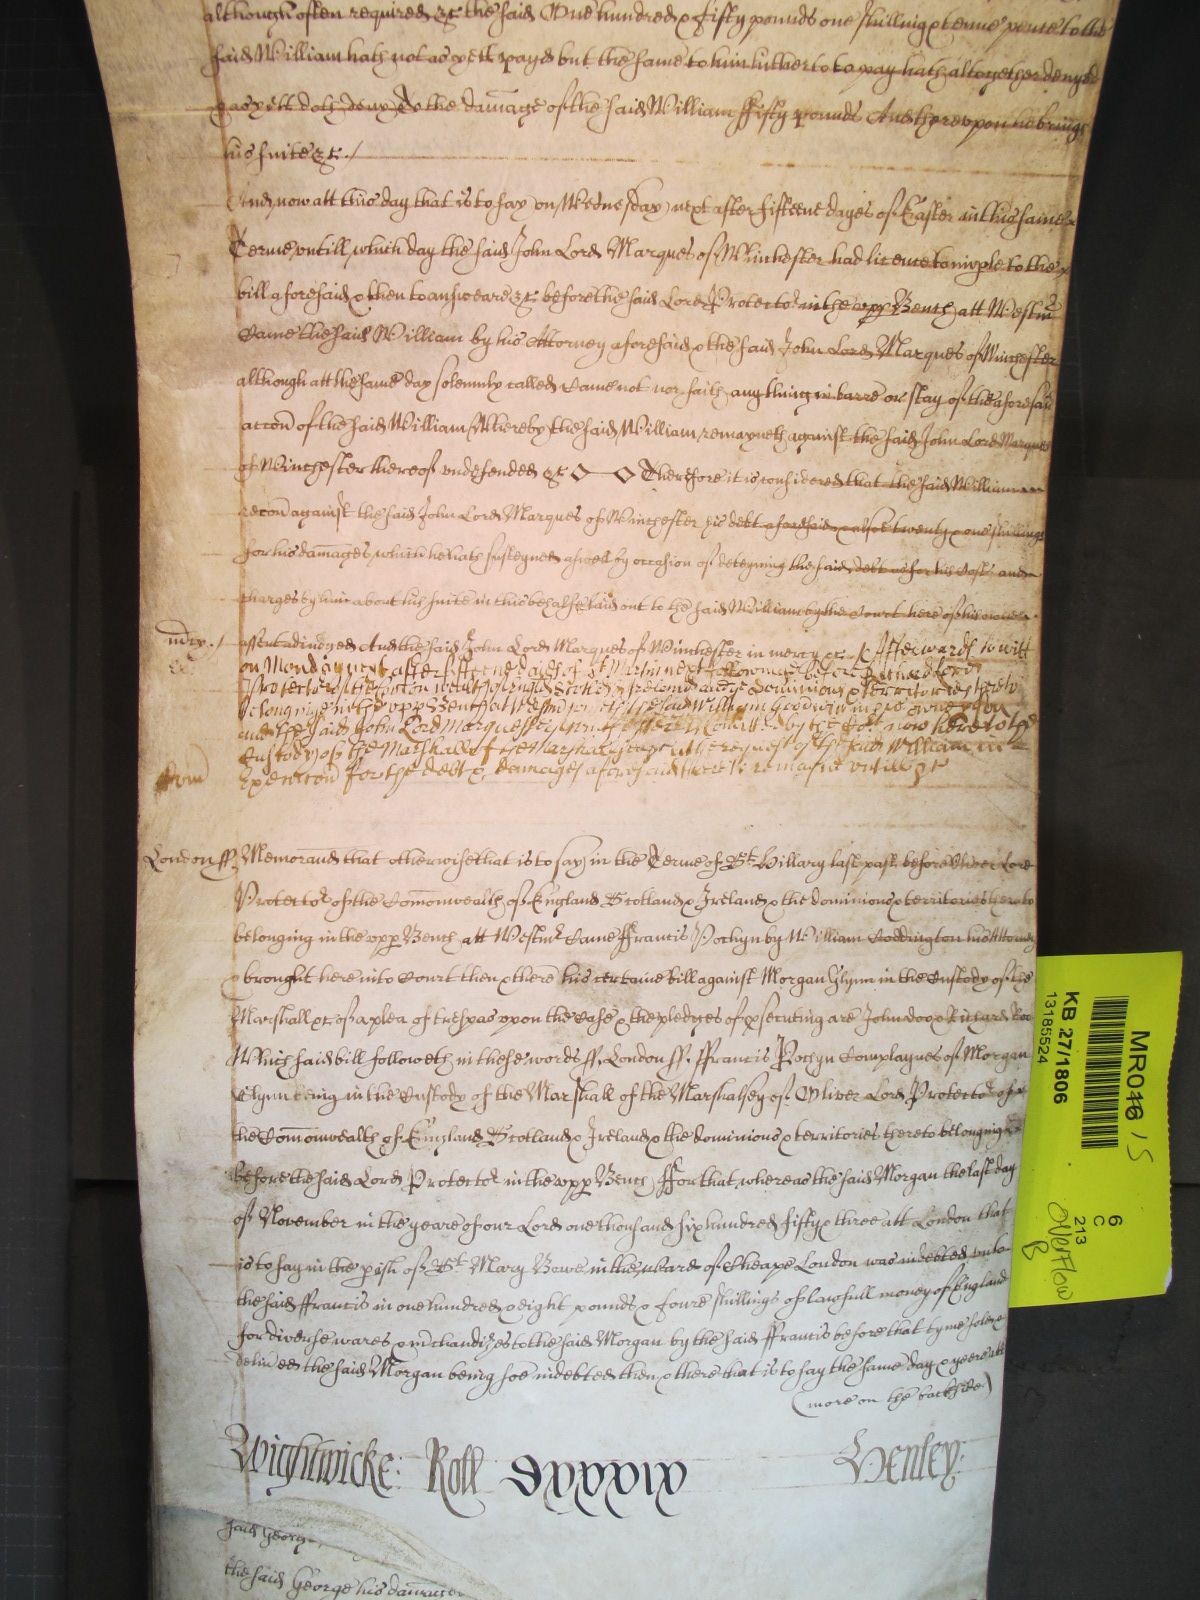 although often required &c the said One hundred & fifty pounds one shilling & tenne pence to the
said William hath not as yett payd but the same to him hitherto to pay hath altogether denyed
& as yett doth deny To the damage of the said William ffifty pounds And thereupon he brings
his suite &c./
And now att this day that is to say on Wednesday next after fifteene dayes of Easter in this same
Terme untill which day the said John Lord Marques of Winchester had licence to imple to the
bill aforesaid & then to answeare &c before the said Lord Protector in the upp Bench att Westm
Came the said William by his Attorney aforesaid & the said John Lord Marques of Winchester
although att the same day solemnly called Came not nor saith any thing in barre or stay of the aforesaid
accon of the said William Whereby the said William remayneth against the said John Lord Marques
of Winchester thereof undefended &c Therefore it is considered that the said William
recou against the said John Lord Marques of Winchester his debt aforesaid & alsoe twenty & one shillings
for his damages which he hath susteyned aswell by occasion of deteyning the said debt as for his Costs and
charges by him about his suite in this behalfe laid out to the said William by the Court here of his owne
mcy./ assent adiudged And the said John Lord Marques of Winchester in mercy &c./ Afterwards to witt
on Monday next after fifteene daies of St Martin next following before Lord
Protector of the Comon wealth of England Scotland Ireland and the dominions & territories thereto
belonging in the upp Bench at Westm in his owne
and the said John Lord Marquesse of Winchester is Comitted by the Cort now here to the
Custody of the Marshall of the Marshalsey att the request of the said William in
Execucon for the debt & damages aforesaid there to remaine untill &c
London ff. Memorand that otherwise that is to say in the Terme of St Hillary last past before Oliver Lord
Protector of the Comonwealth of England Scotland & Ireland & the dominions & territories thereto
belonging in the upp Bench att Westm Came ffrancis Pochyn by William Coddrington his Attorney
& brought here into Court then & there his certaine bill against Morgan Glynn in the Custody of the
Marshall &c of a plea of trespas upon the Case & the pledges of psecuting are John doo & Richard Roo
Which said bill followeth in these words ff. London ff. ffrancis Pochyn Complaynes of Morgan
Glynn being in the Custody of the Marshall of the Marshalsey of Oliver Lord Protector of
the Comonwealth of England Scotland & Ireland & the dominions & territories thereto belonging
before the said Lord Protector in the upp Bench ffor that whereas the said Morgan the last day
of November in the yeare of our Lord one thousand six hundred fifty & three att London that
is to say in the pish of St Mary Bowe in the ward of Cheape London was indebted unto
the said ffrancis in one hundred & eight pounds & foure shillings of lawfull money of England
for diverse wares & mchandizes to the said Morgan by the said ffrancis before that tyme sold &
delived the said Morgan being soe indebted then & there that is to say the same day & yeere att
(more on the backside.)
Wightwicke: Roll DXXXIX Henley:
said George
the said George his damages
MR048 / 5
KB 27/1806
13185524
6
C
213
OVERFLOW
B